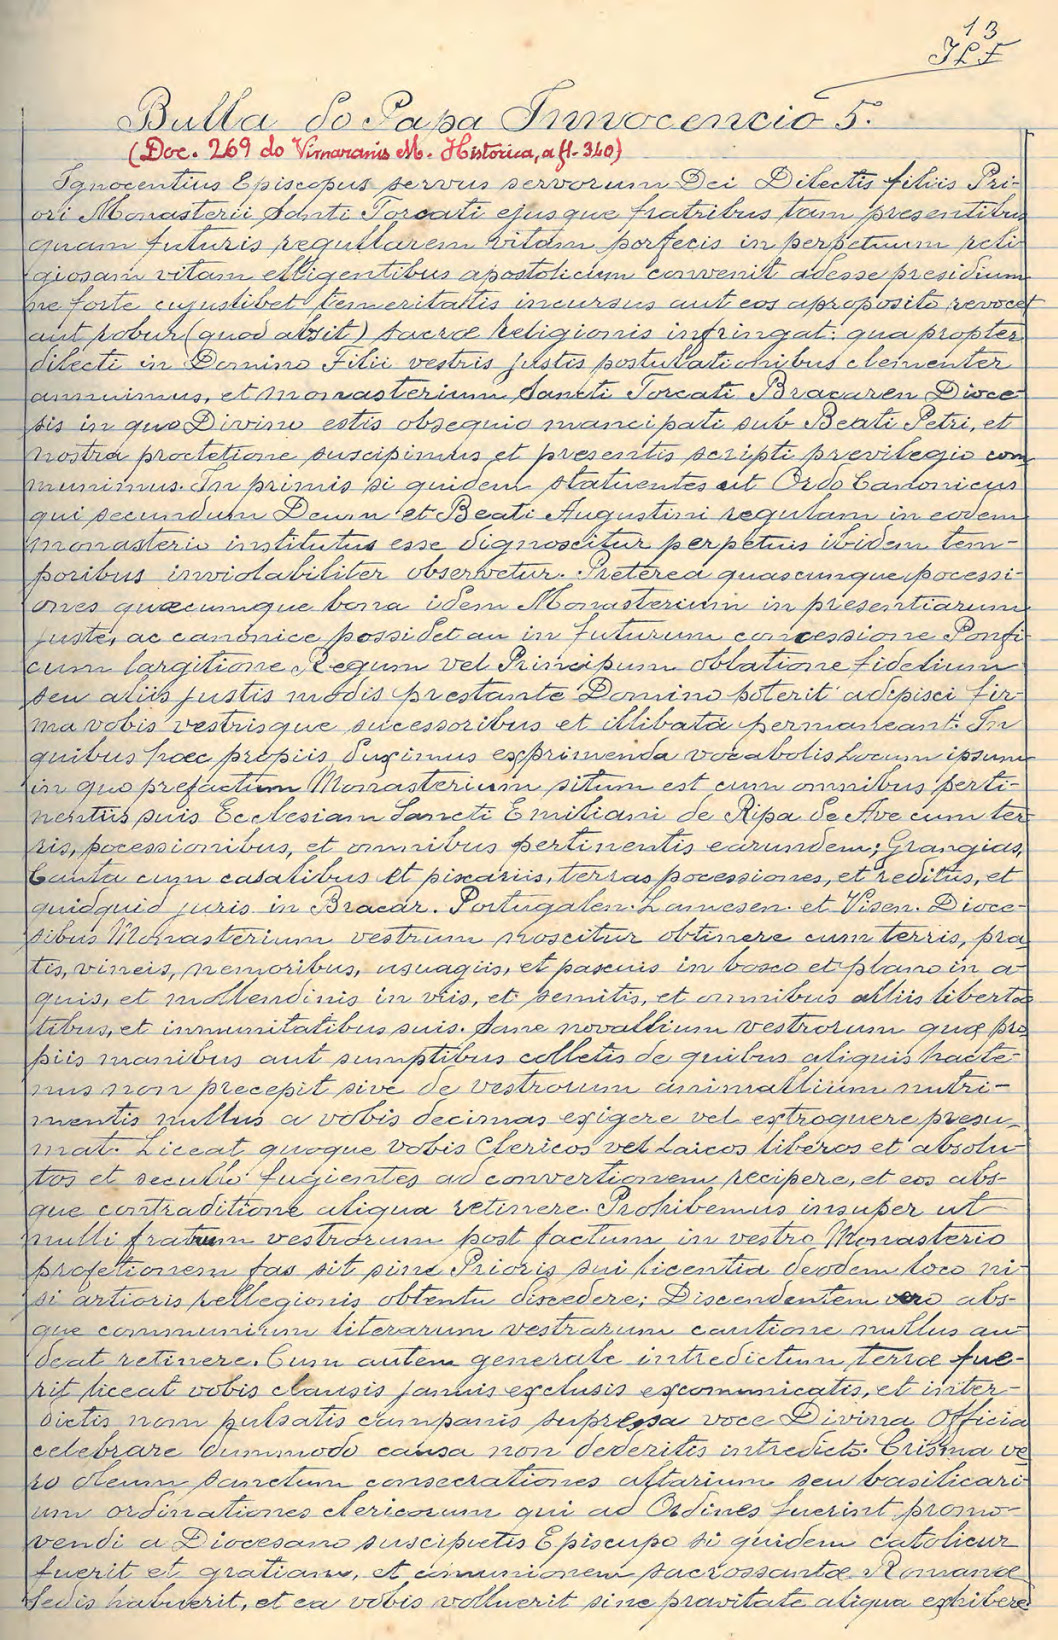 13
JLF
Bulla do Papa Innocencio 5.
(Doc. 269 do Vimaranis M. Historica, a fl. 340)
Ignocentius Episcopus servus servorum Dei Dilectis filiis Pri-
ori Monasterii Santi Torcati ejusque fratribus tam presentibus
quam futuris regullarem vitam porfecis in perpetuum reli-
giosam vitam elligentibus apostolicum convenit adesse presidium
ne forte cujuslibet temeritatis incursus aut eos aproposito revocet
aut robur (quod absit) sacræ religionis infringat: qua propter
dilecti in Domino Filii vestris justis postulationibus clementer
annuimus, et monasterium Sancti Torcati Bracaren Dioce-
sis in quo Divino estis obsequio mancipati sub Beati Petri, et
nostra proctetione suscipimus et presentis scripti previlegio com
munimus. In primis si quidem statuentes ut Ordo Canonicus
qui secundum Deum et Beati Augustini regulam in eodem
monasterio institutus esse dignoscitur perpetuis ibidem tem-
poribus inviolabiliter observetur. Preterea quascunque pocessi-
ones quæcumque bona idem Monasterium in presentiarum
juste, ac canonice possidet au in futurum concessione Ponfi
cum largitione Regum vel Principum oblatione fidelium
seu aliis justis modis prestante Domino poterit adipisci fir-
ma vobis vestrisque sucessoribus et illibata permaneant. In
quibus hæc propiis duximus exprimenda vocabolis Locum ipsum
in quo prefactum Monasterium situm est cum omnibus perti-
nentiis suis Ecclesiam Sancti Emiliani de Ripa de Ave cum ter
ris, pocessionibus, et omnibus pertinentis earundem; Grangias,
Cauta cum casalibus et piscariis, terras pocessiones, et reditus, et
quidquid juris in Bracar. Portugalen. Lamesen. et Visen. Dioce-
sibus Monasterium vestrum noscitur obtinere cum terris, pra
tis, vineis, nemoribus, usuagiis, et pascuis in bosco et plano in a-
quis, et mollendinis in viis, et semitis, et omnibus alliis liberta
tibus, et inmunitatibus suis. Sane novallium vestrorum quæ pro
piis manibus aut sumptibus colletis de quibus aliquis hacte-
nus non precepit sive de vestrorum animallium nutri-
mentis nullus a vobis decimas exigere vel extroquere presu-
mat. Liceat quoque vobis Clericos vel Laicos liberos et absolu-
tos et secullo fugientes ad convertionem recipere, et eos abs-
que contraditione aliqua retinere. Prohibemus insuper ut
nulli fratrum vestrorum post factum in vestro Monasterio
profetionem fas sit sine Prioris sui licentia deodem loco ni-
si artioris rellegionis obtentu discedere; Discendentem vero abs-
que communium literarum vestrarum cautione nullus au-
deat retinere. Cum autem generale intredictum terræ fue-
rit liceat vobis clausis januis exclusis excomunicatis, et inter-
dictis nom pulsatis campanis supressa voce Divina Officia
celebrare dummodo causa non dederitis intredicto. Crisma ve
ro oleum sanctum consecrationes altarium seu basilicari-
um ordinationes clericorum qui ad Ordines fuerint promo-
vendi a Diocesano suscipietis Episcupo si quidem catolicur
fuerit et gratiam, et comunionem sacrossantæ Romanæ
Sedis habuerit, et ea vobis volluerit sine pravitate aliqua exhibere